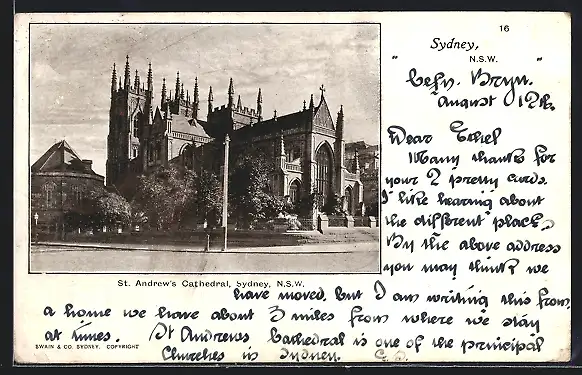 16
Sydney,
N.S.W.
" Cefn. Bryn. "
August 12th.
Dear Ethel
Many thanks for
your 2 pretty cards.
I like hearing about
the different places,
By the above address
you may think we
St. Andrew's Cathedral, Sydney, N.S.W.
have moved, but I am writing this from
a home we have about 3 miles from where we stay
at times. St Andrews Cathedral is one of the principal
SWAIN & CO. SYDNEY, COPYRIGHT
Churches in Sydney.